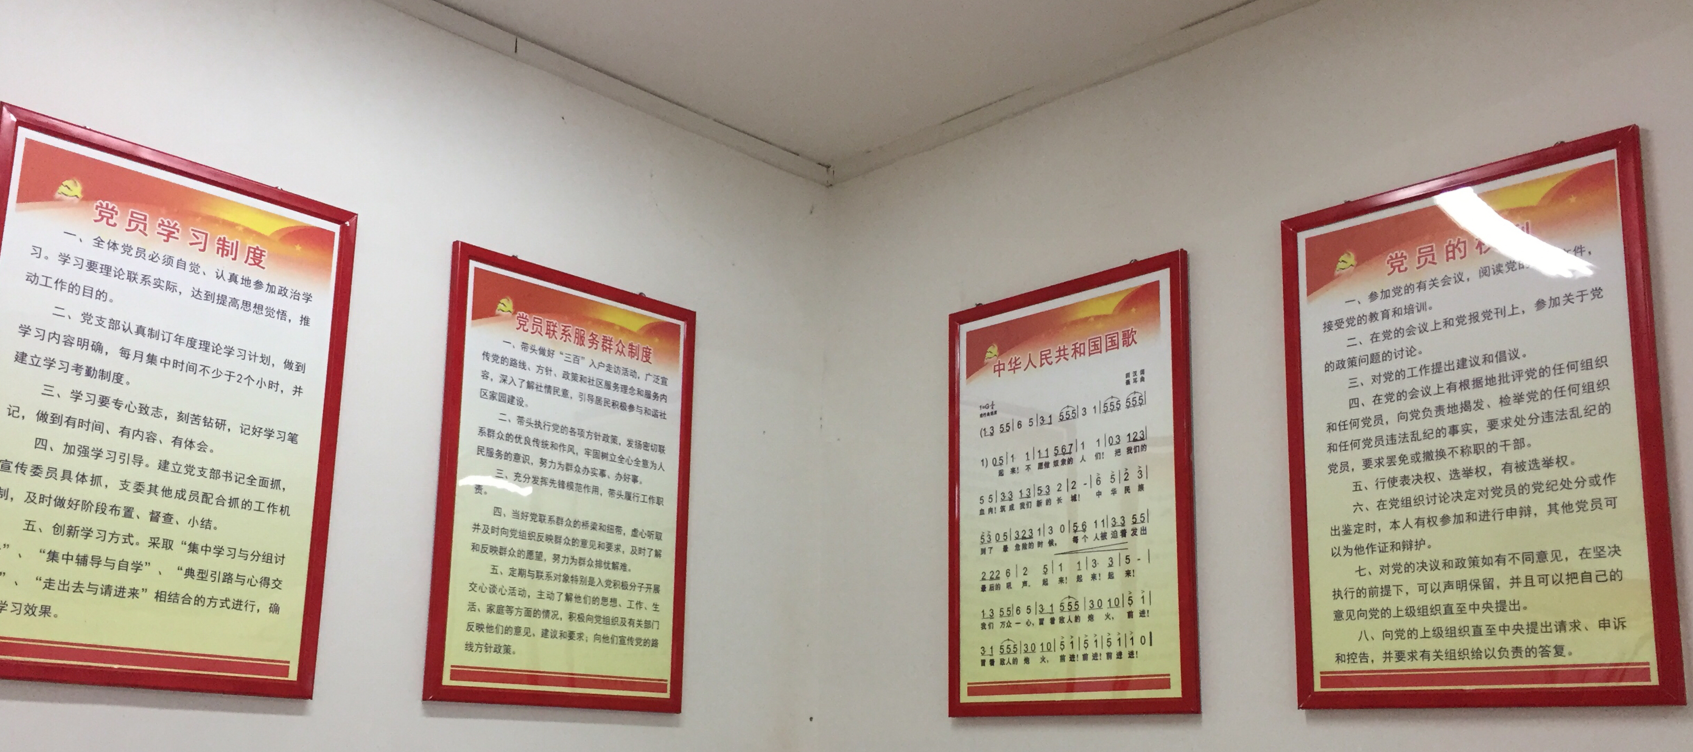 党员学习制度
一、全体党员必须自觉、认真地参加政治学
习。学习要理论联系实际，达到提高思想觉悟，推
动工作的目的。
二、党支部认真制订年度理论学习计划，做到
学习内容明确，每月集中时间不少于2个小时，并
建立学习考勤制度。
三、学习要专心致志，刻苦钻研，记好学习笔
记，做到有时间、有内容、有体会。
四、加强学习引导。建立党支部书记全面抓，
宣传委员具体抓，支委其他成员配合抓的工作机
制，及时做好阶段布置、督查、小结。
五、创新学习方式。采取“集中学习与分组讨
”、“集中辅导与自学”、“典型引路与心得交
”、“走出去与请进来”相结合的方式进行，确
学习效果。
党员联系服务群众制度
一、带头做好“三百”入户走访活动，广泛宣
传党的路线、方针、政策和社区服务理念和服务内
容，深入了解社情民意，引导居民积极参与和谐社
区家园建设。
二、带头执行党的各项方针政策，发扬密切联
系群众的优良传统和作风，牢固树立全心全意为人
民服务的意识，努力为群众办实事、办好事。
三、充分发挥先锋模范作用，带头履行工作职
责。
四、当好党联系群众的桥梁和纽带，虚心听取
并及时向党组织反映群众的意见和要求，及时了解
和反映群众的愿望，努力为群众排忧解难。
五、定期与联系对象特别是入党积极分子开展
交心谈心活动，主动了解他们的思想、工作、生
活、家庭等方面的情况，积极向党组织及有关部门
反映他们的意见、建议和要求；向他们宣传党的路
线方针政策。
中华人民共和国国歌
(1 3 5 5 | 6 5 | 3 1 5 5 5 | 3 1 | 5 5 5 5 5 5 |
1) 0 5 | 1 1 | 1 1 5 6 7 | 1 1 | 0 3 1 2 3 |
起 来！不 愿做 奴隶的 人 们！ 把 我们的
5 5 | 3 3 1 3 | 5 3 2 | 2 - | 6 5 | 2 3 |
血 肉！筑 成 我们 新 的 长 城！ 中 华 民 族
5 3 0 5 | 3 2 3 1 | 3 0 | 5 6 1 1 | 3 3 5 5 |
到了 最 危险的 时 候， 每 个 人被 迫着 发出
2 2 2 6 | 2 5 | 1 1 | 3 3 | 5 - |
最后的 吼 声。 起 来！起 来！起 来！
1 3 5 5 | 6 5 | 3 1 5 5 5 | 3 0 1 0 | 5 1 |
我们 万众 一 心，冒 着 敌人的 炮 火， 前 进！
3 1 5 5 5 | 3 0 1 0 | 5 1 | 5 1 | 5 1 | 1 0 |
冒着 敌人的 炮 火， 前 进！前 进！前 进 进！
党员的权利
一、参加党的有关会议，阅读党的 文件，
接受党的教育和培训。
二、在党的会议上和党报党刊上，参加关于党
的政策问题的讨论。
三、对党的工作提出建议和倡议。
四、在党的会议上有根据地批评党的任何组织
和任何党员，向党负责地揭发、检举党的任何组织
和任何党员违法乱纪的事实，要求处分违法乱纪的
党员，要求罢免或撤换不称职的干部。
五、行使表决权、选举权，有被选举权。
六、在党组织讨论决定对党员的党纪处分或作
出鉴定时，本人有权参加和进行申辩，其他党员可
以为他作证和辩护。
七、对党的决议和政策如有不同意见，在坚决
执行的前提下，可以声明保留，并且可以把自己的
意见向党的上级组织直至中央提出。
八、向党的上级组织直至中央提出请求、申诉
和控告，并要求有关组织给以负责的答复。